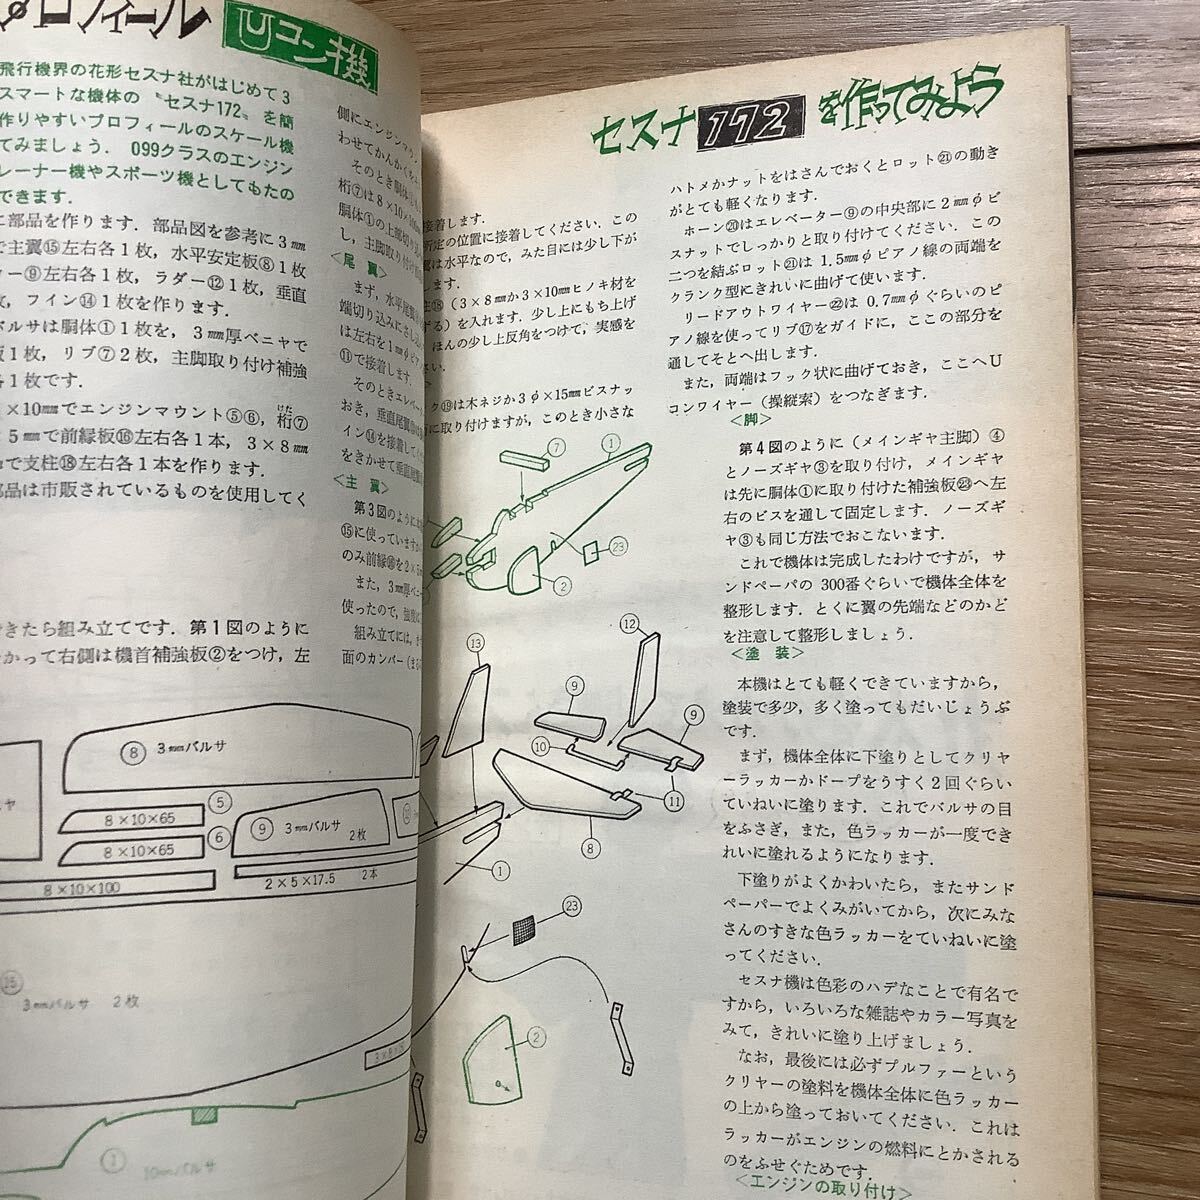 プロフィール Uコン機
飛行機界の花形セスナ社がはじめて3
スマートな機体の〝セスナ172〟を簡
作りやすいプロフィールのスケール機
てみましょう．099クラスのエンジン
レーナー機やスポーツ機としてもたの
できます．
に部品を作ります．部品図を参考に3㎜
で主翼⑮左右各1枚，水平安定板⑧1枚
ター⑨左右各1枚，ラダー⑫1枚，垂直
枚，フイン⑭1枚を作ります．
バルサは胴体①1枚を，3㎜厚ベニヤで
板1枚，リブ⑦2枚，主脚取り付け補強
各1枚です．
×10㎜でエンジンマウント⑤⑥，桁⑦
けた
×5㎜で前縁板⑯左右各1本，3×8㎜
で支柱⑱左右各1本を作ります．
部品は市販されているものを使用してく
きたら組み立てです．第1図のように
かって右側は機首補強板②をつけ，左
側にエンジンマウン
わせてかんかく
そのとき胴体
桁⑦は8×10×
胴体①の上部切り
し，主脚取り付け
<尾翼>
まず，水平尾翼
端切り込みにさし込
は左右を1㎜φピ
⑪で接着します．
そのときエレベー
おき，垂直尾翼
イン⑭を接着して
をきかせて垂直尾翼
<主翼>
第3図のように
⑮に使っています
のみ前縁⑯を2×5
また，3㎜厚ベニ
使ったので，強度に
組み立てには，
面のカンバー（ま
⑧ 3㎜バルサ
⑤
8×10×65
⑥
8×10×65
⑨ 3㎜バルサ 2枚
8×10×100
2×5×17.5 2本
⑮
3㎜バルサ 2枚
①
10㎜バルサ
セスナ172を作ってみよう
接着します．
所定の位置に接着してください．この
翼は水平なので，みた目には少し下が
します．
柱⑱（3×8㎜か3×10㎜ヒノキ材を
ずる）を入れます．少し上にもち上げ
ほんの少し上反角をつけて，実感を
さい．
ク⑲は木ネジか3φ×15㎜ビスナッ
に取り付けますが，このとき小さな
ハトメかナットをはさんでおくとロット㉑の動き
がとても軽くなります．
ホーン⑳はエレベーター⑨の中央部に2㎜φビ
スナットでしっかりと取り付けてください．この
二つを結ぶロット㉑は1.5㎜φピアノ線の両端を
クランク型にきれいに曲げて使います．
リードアウトワイヤー㉒は0.7㎜φぐらいのピ
アノ線を使ってリブ⑰をガイドに，ここの部分を
通してそとへ出します．
また，両端はフック状に曲げておき，ここへU
コンワイヤー（操縦索）をつなぎます．
<脚>
第4図のように（メインギヤ主脚）④
とノーズギヤ③を取り付け，メインギヤ
は先に胴体①に取り付けた補強板㉓へ左
右のビスを通して固定します．ノーズギ
ヤ③も同じ方法でおこないます．
これで機体は完成したわけですが，サ
ンドペーパの300番ぐらいで機体全体を
整形します．とくに翼の先端などのかど
を注意して整形しましょう．
<塗装>
本機はとても軽くできていますから，
塗装で多少，多く塗ってもだいじょうぶ
です．
まず，機体全体に下塗りとしてクリヤ
ーラッカーかドープをうすく2回ぐらい
ていねいに塗ります．これでバルサの目
をふさぎ，また，色ラッカーが一度でき
れいに塗れるようになります．
下塗りがよくかわいたら，またサンド
ペーパーでよくみがいてから，次にみな
さんのすきな色ラッカーをていねいに塗
ってください．
セスナ機は色彩のハデなことで有名で
すから，いろいろな雑誌やカラー写真を
みて，きれいに塗り上げましょう．
なお，最後には必ずプルファーという
クリヤーの塗料を機体全体に色ラッカー
の上から塗っておいてください．これは
ラッカーがエンジンの燃料にとかされる
のをふせぐためです．
<エンジンの取り付け>
⑦
①
㉓
②
⑬
⑫
⑨
⑨
⑩
⑪
⑧
①
㉓
②